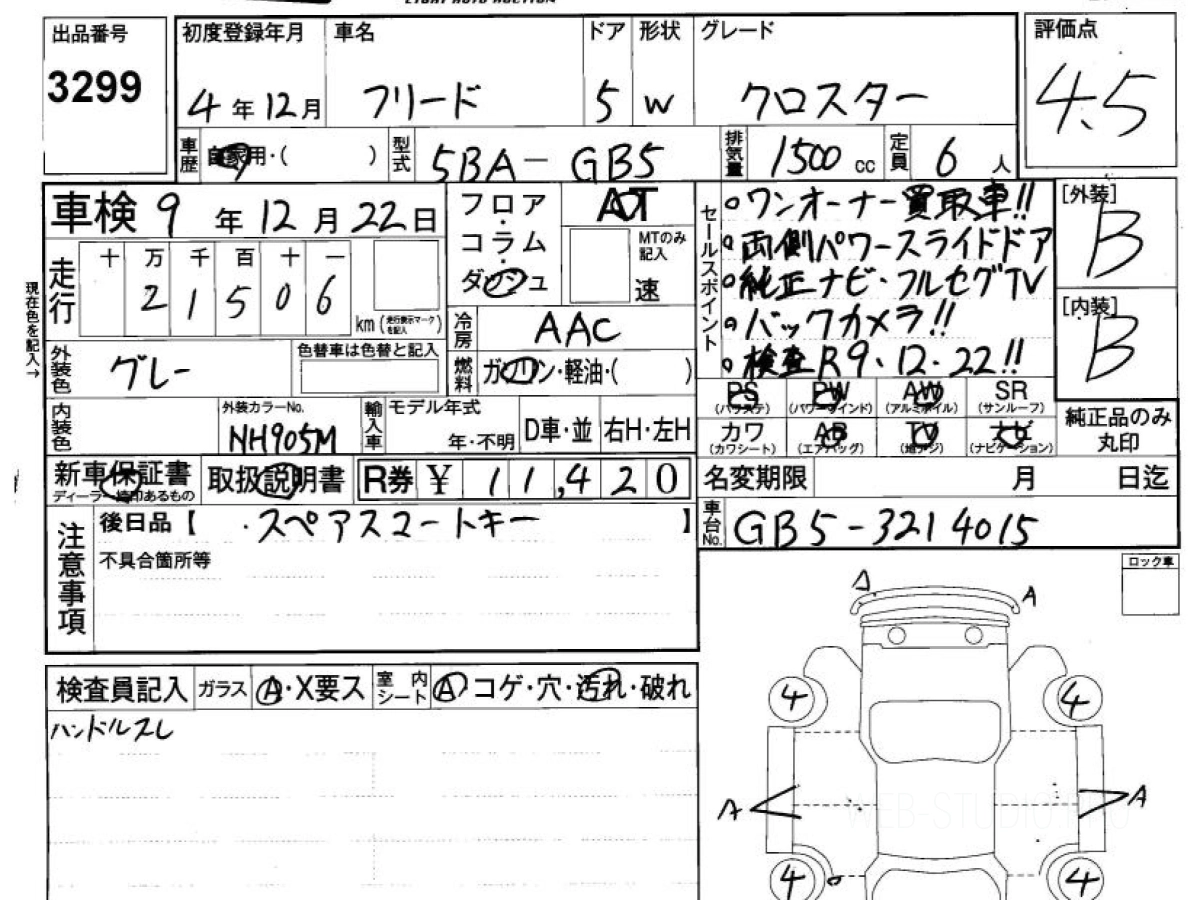 出品番号
3299
初度登録年月 車名 ドア 形状 グレード
4年12月 フリード 5 W クロスター
評価点
4.5
車歴 自家用・( ) 型式 5BA-GB5 排気量 1500 cc 定員 6 人
車検 9年12月22日
フロア・コラム
ダッシュ
AT
MTのみ記入
速
走行 十 万 千 百 十 一
2 1 5 0 6
km (走行表示マークを記入)
現在色を記入→
冷房 AAC
燃料 ガソリン・軽油・( )
外装色 グレー
色替車は色替と記入
内装色
外装カラーNo.
NH905M
輸入車 モデル年式
年・不明
D車・並 右H・左H
セールスポイント
○ワンオーナー買取車!!
○両側パワースライドドア
○純正ナビ・フルセグTV
○バックカメラ!!
○検査R9・12・22!!
[外装]
B
[内装]
B
PS PW AW SR
(パワステ) (パワーウインド) (アルミホイル) (サンルーフ)
カワ AB TV ナビ
(カワシート) (エアバッグ) (地デジ) (ナビゲーション)
純正品のみ
丸印
新車保証書
ディーラー捺印あるもの
取扱説明書
R券 ¥ 11,420
名変期限 月 日迄
車台No. GB5-3214015
注意事項
後日品【 ・スペアスマートキー 】
不具合箇所等
ロック車
検査員記入 ガラス A・X要ス 室内シート A コゲ・穴・汚れ・破れ
ハンドルスレ
A
A
4
4
A
A
4
4
WEB-STUDIO.PRO